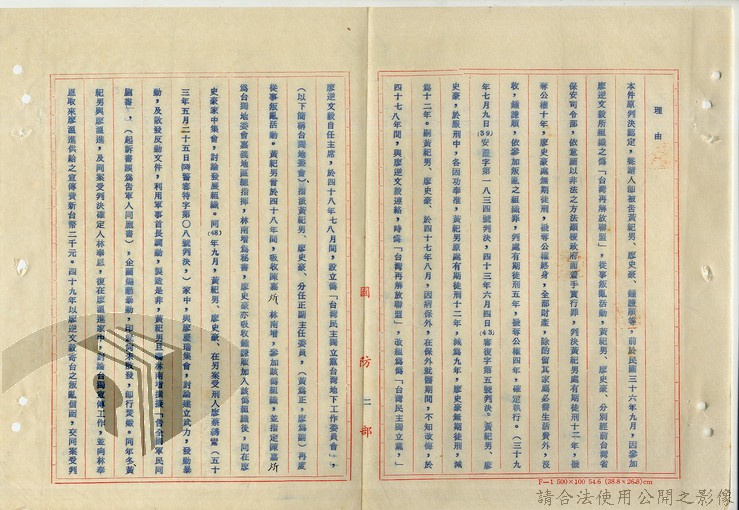 理由
本件原判決認定，聲請人即被告黃紀男、廖史豪、鍾謙順等，前於民國三十六年九月，因參加
廖逆文毅所組織之偽「台灣再解放聯盟」，從事叛亂活動，黃紀男、廖史豪、分別經前台灣省
保安司令部，依意圖以非法之方法顛覆政府而着手實行罪，判決黃紀男處有期徒刑十二年，褫
奪公權十年，廖史豪處無期徒刑，褫奪公權終身，全部財產，除酌留其家屬必需生活費外，沒
收，鍾謙順，依參加叛亂之組織罪，判處有期徒刑五年，褫奪公權四年，確定執行。（三十九
年七月九日(39)安澄字第一八三四號判決，四十三年六月四日(43)審復字第五號判決。黃紀男、廖
史豪，於服刑中，各因功奉准，黃紀男原處有期徒刑十二年，減為九年，廖史豪無期徒刑，減
為十二年。嗣黃紀男、廖史豪、於四十七年八月，因病保外，在保外就醫期間，不知改悔，於
四十七八年間，與廖逆文毅連絡，時偽「台灣再解放聯盟」，改組為偽「台灣民主獨立黨」，
廖逆文毅自任主席，於四十八年七八月間，設立偽「台灣民主獨立黨台灣地下工作委員會」，
（以下簡稱台灣地委會），指派黃紀男、廖史豪、分任正副主任委員，（黃為正，廖為副）再度
從事叛亂活動。黃紀男首於四十八年間，吸收陳嘉炘 林南增，參加該偽組織，並指定陳嘉炘
為台灣地委會嘉義地區總指揮，林南增為秘書，廖史豪亦吸收鍾謙順加入該偽組織後，同在廖
史豪家中集會，討論發展組織。同(48)年九月，黃紀男、廖史豪、在另案受刑人廖蔡綉鸞（五十
三年五月二十五日(53)警審特字第〇八號判決，）家中，與廖慶瑞集會，討論建立武力，發動暴
動，及散發反動文件，利用軍事首長調動，製造是非，黃紀男且囑林南增撰擬「告全國軍民同
胞書」，（起訴書誤為告軍人同胞書），企圖煽動暴動，印就尚未散發，即行焚燬。同年冬，黃
紀男與廖溫進，及同案受判決確定人林奉恩，復在廖溫進家中，討論台獨宣傳工作，並向林奉
恩取來廖溫進供給之宣傳費新台幣二千元。四十九年以廖逆文毅寄台之叛亂信函，交同案受判
國防部
F—1 500×100 54.6 (38.8×26.8)cm
請合法使用公開之影像